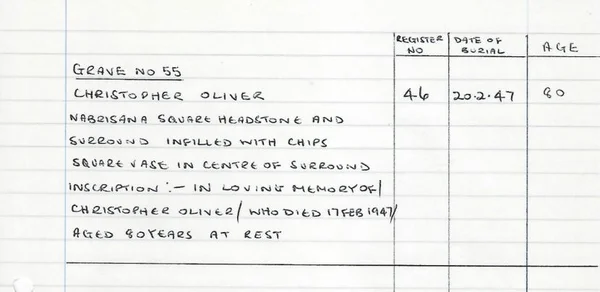 REGISTER NO DATE OF BURIAL AGE
GRAVE NO 55
CHRISTOPHER OLIVER 46 20.2.47 80
NABRISANA SQUARE HEADSTONE AND
SURROUND INFILLED WITH CHIPS
SQUARE VASE IN CENTRE OF SURROUND
INSCRIPTION :- IN LOVING MEMORY OF/
CHRISTOPHER OLIVER/ WHO DIED 17 FEB 1947/
AGED 80 YEARS AT REST